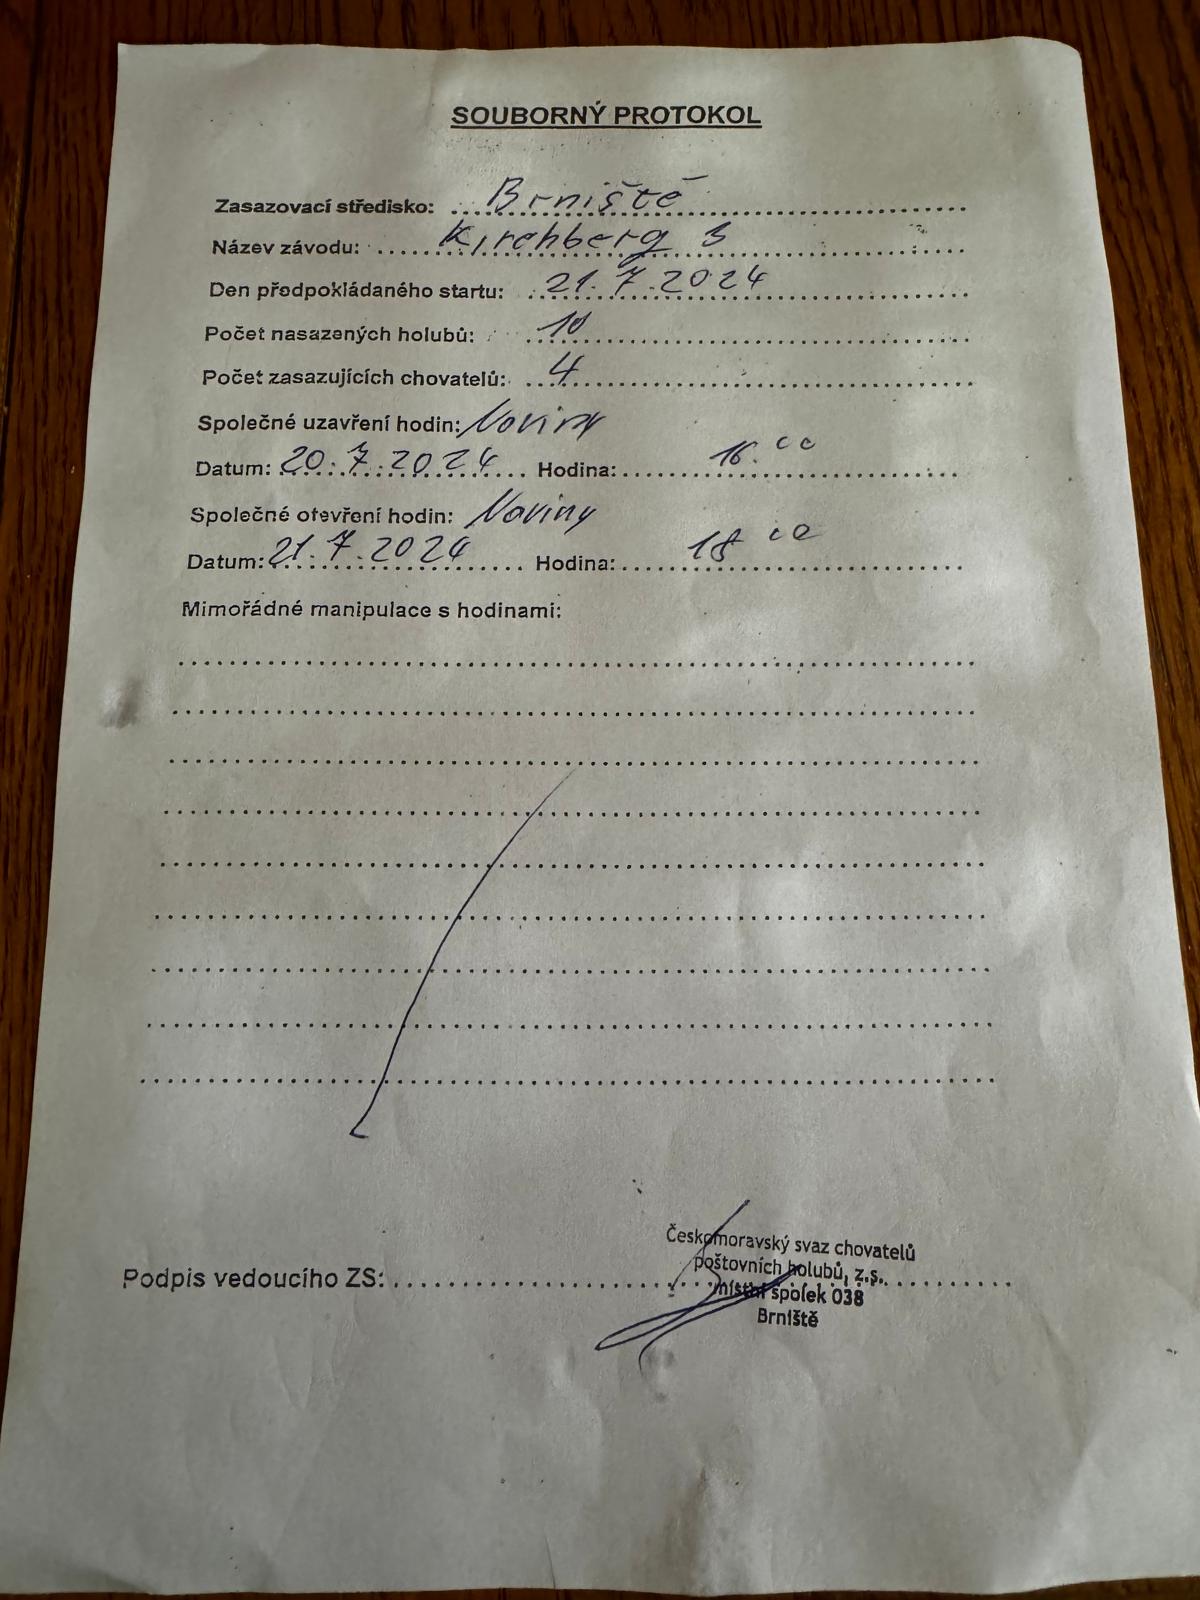 SOUBORNÝ PROTOKOL
Zasazovací středisko: Brniště
Název závodu: Kirchberg 3
Den předpokládaného startu: 21.7.2024
Počet nasazených holubů: 10
Počet zasazujících chovatelů: 4
Společné uzavření hodin: Noviny
Datum: 20.7.2024 Hodina: 16.00
Společné otevření hodin: Noviny
Datum: 21.7.2024 Hodina: 18 00
Mimořádné manipulace s hodinami:
Českomoravský svaz chovatelů
poštovních holubů, z.s.
Podpis vedoucího ZS:
místní spolek 038
Brniště